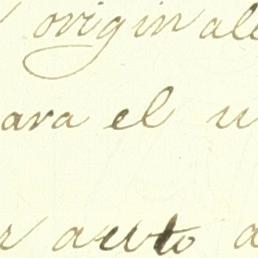 original
ara el u
r auto a